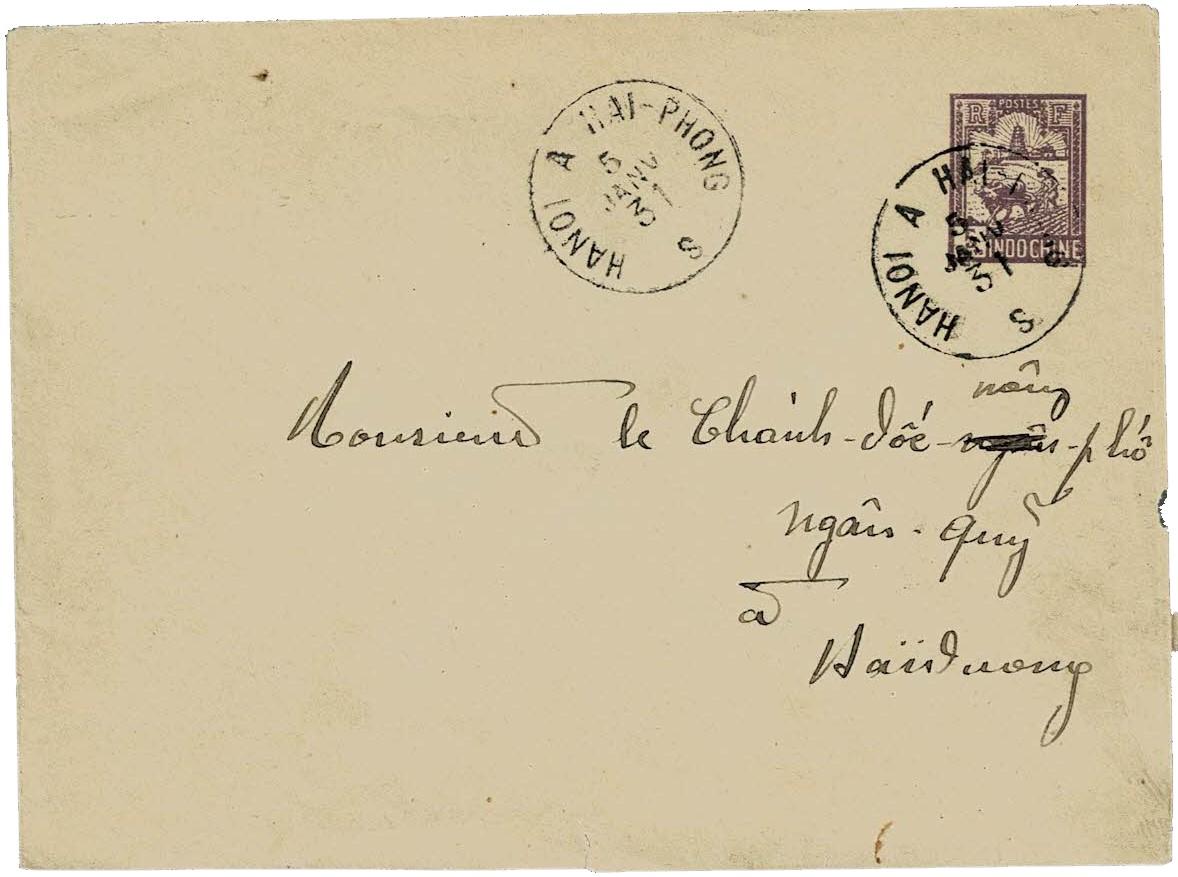 HANOI A HAI-PHONG
5
JANV
31
S
POSTES
R F
5c INDOCHINE
HANOI A HAI-
5
JANV
31
S
nông
Monsieur le Chánh-đốc-phố
Ngân-quỹ
à
Haïduong